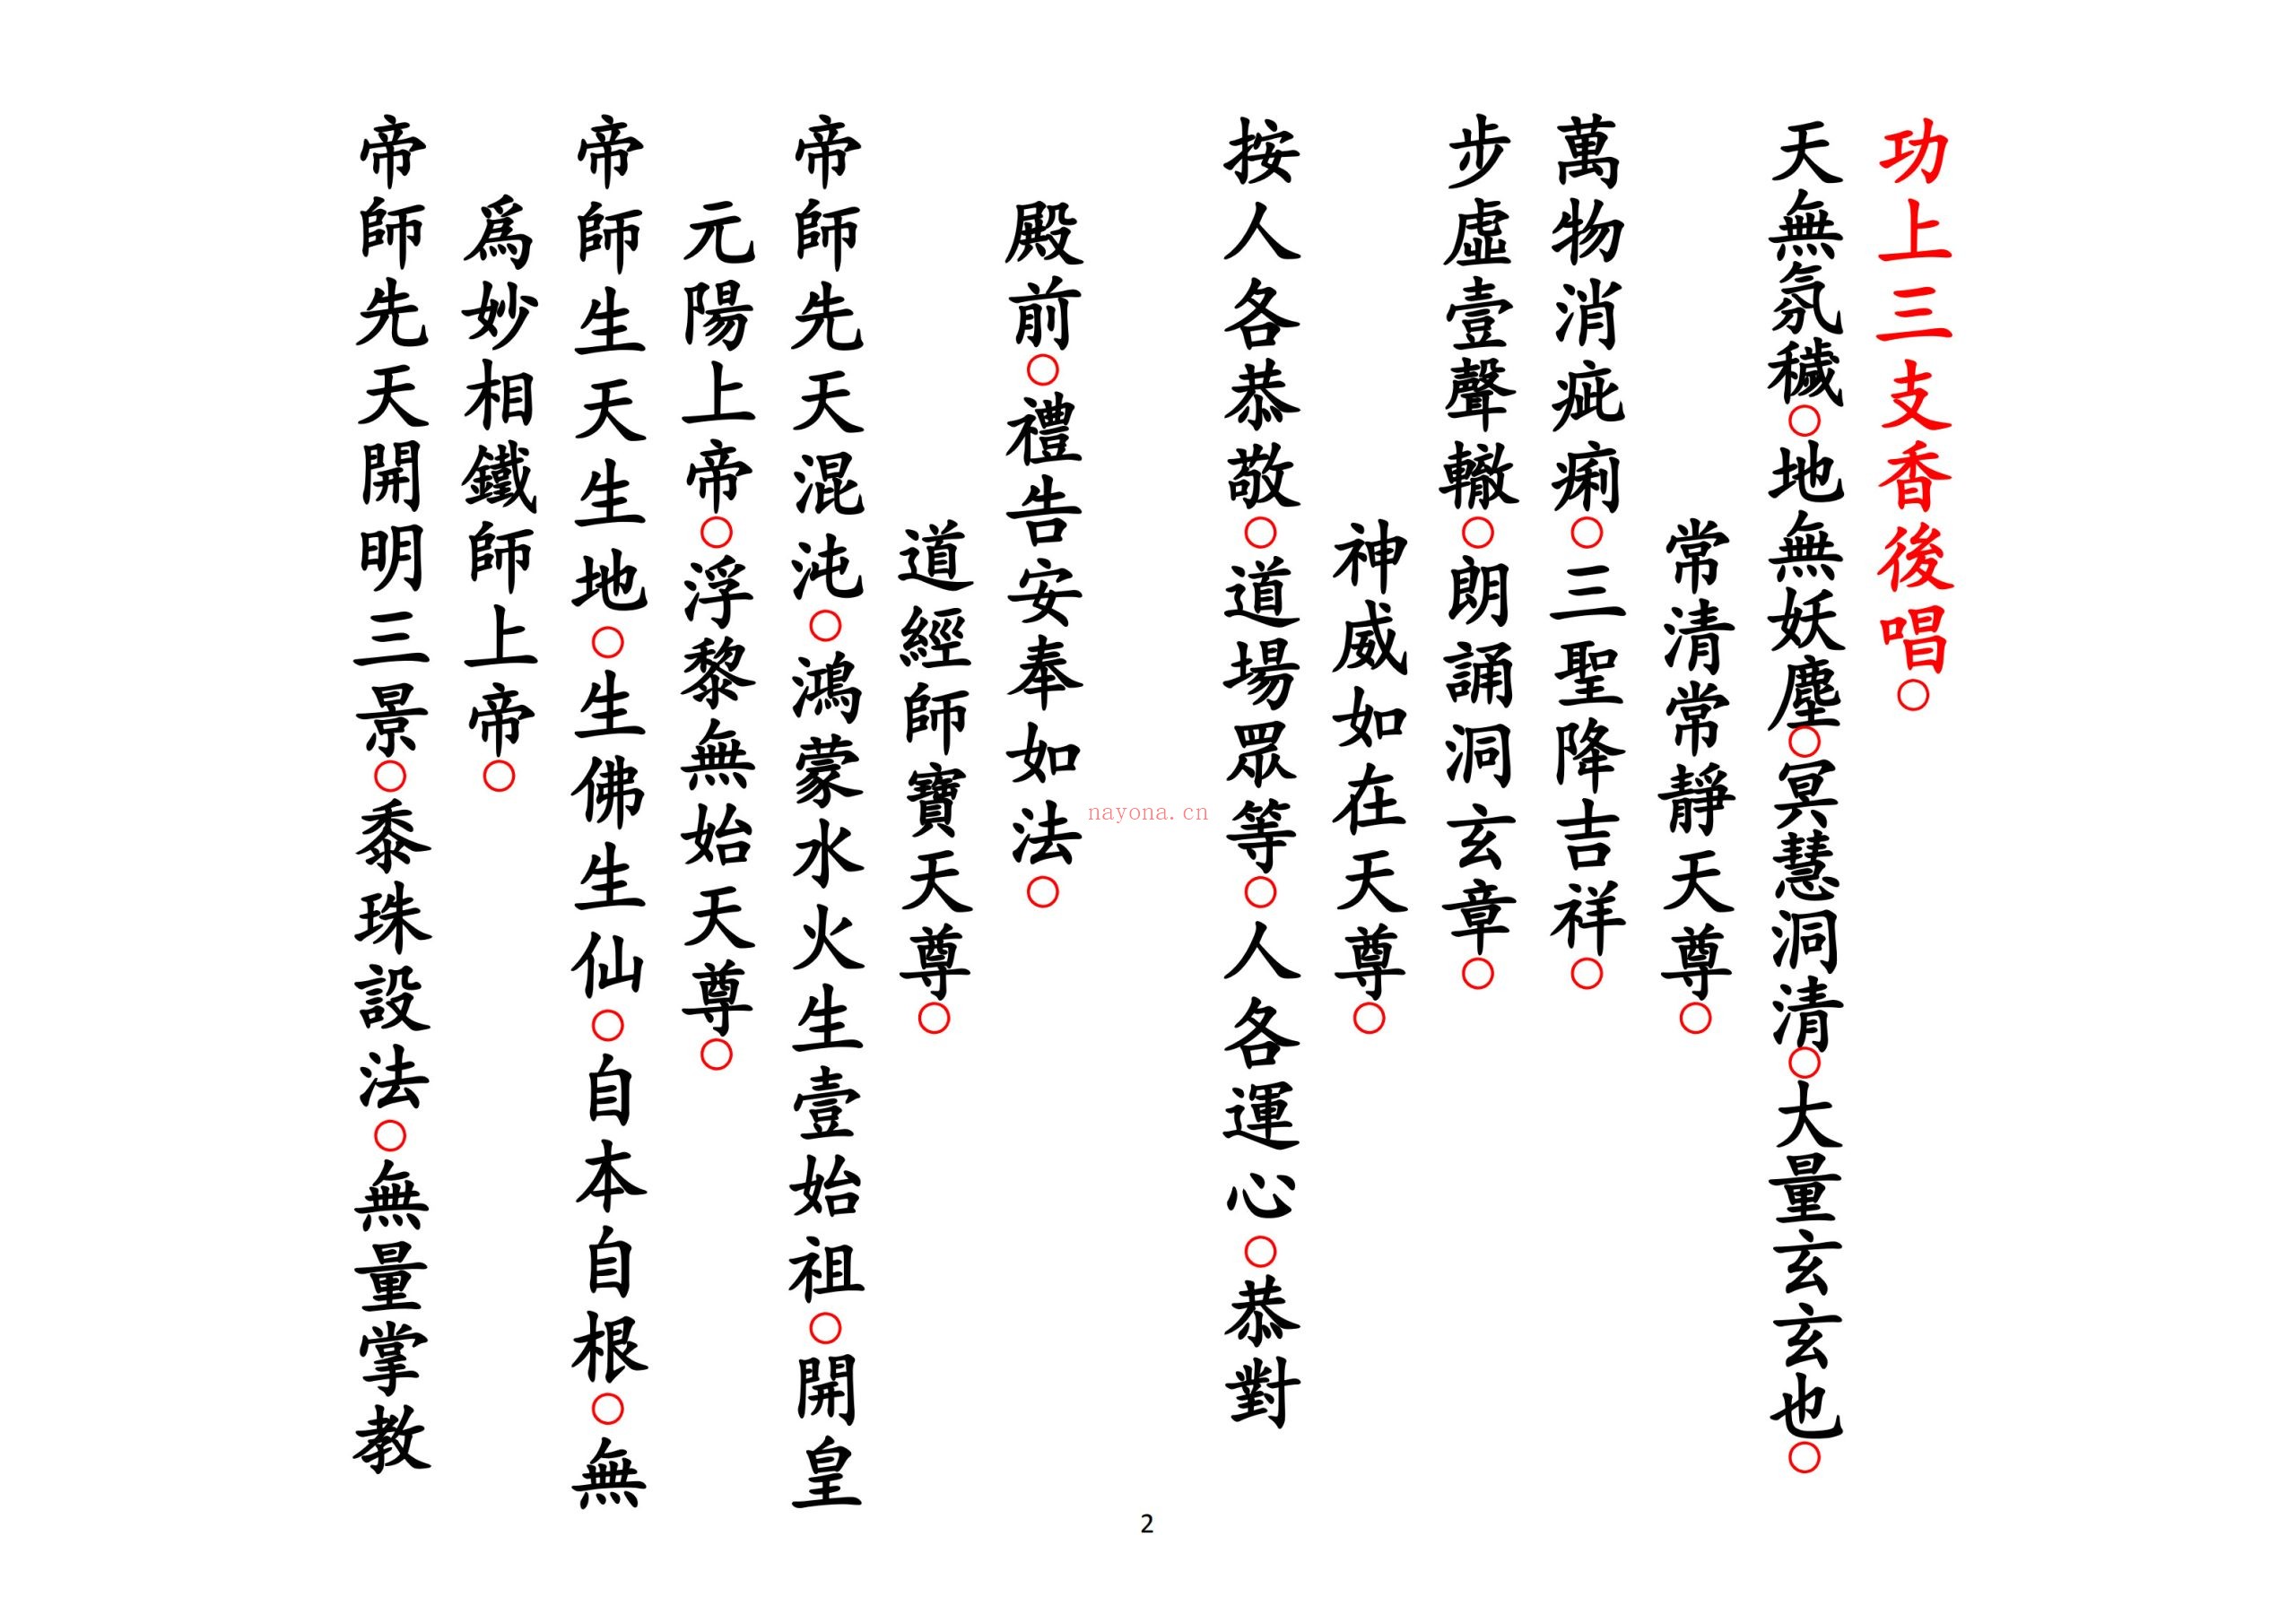 功上三支香後唱○
天無氛穢○地無妖塵○冥慧洞清○大量玄玄也○
常清常靜天尊○
萬物消疵痢○三聖降吉祥○
步虛壹聲轍○朗誦洞玄章○
神威如在天尊○
按人各恭敬○道場眾等○人各運心○恭對
殿前○禮告安奉如法○
道經師寶天尊○
帝師先天混沌○鴻蒙水火生壹始祖○開皇
元陽上帝○浮黎無始天尊○
帝師生天生地○生佛生仙○自本自根○無
爲妙相鐵師上帝○
帝師先天開明三景○黍珠設法○無量掌教
nayona.cn
2